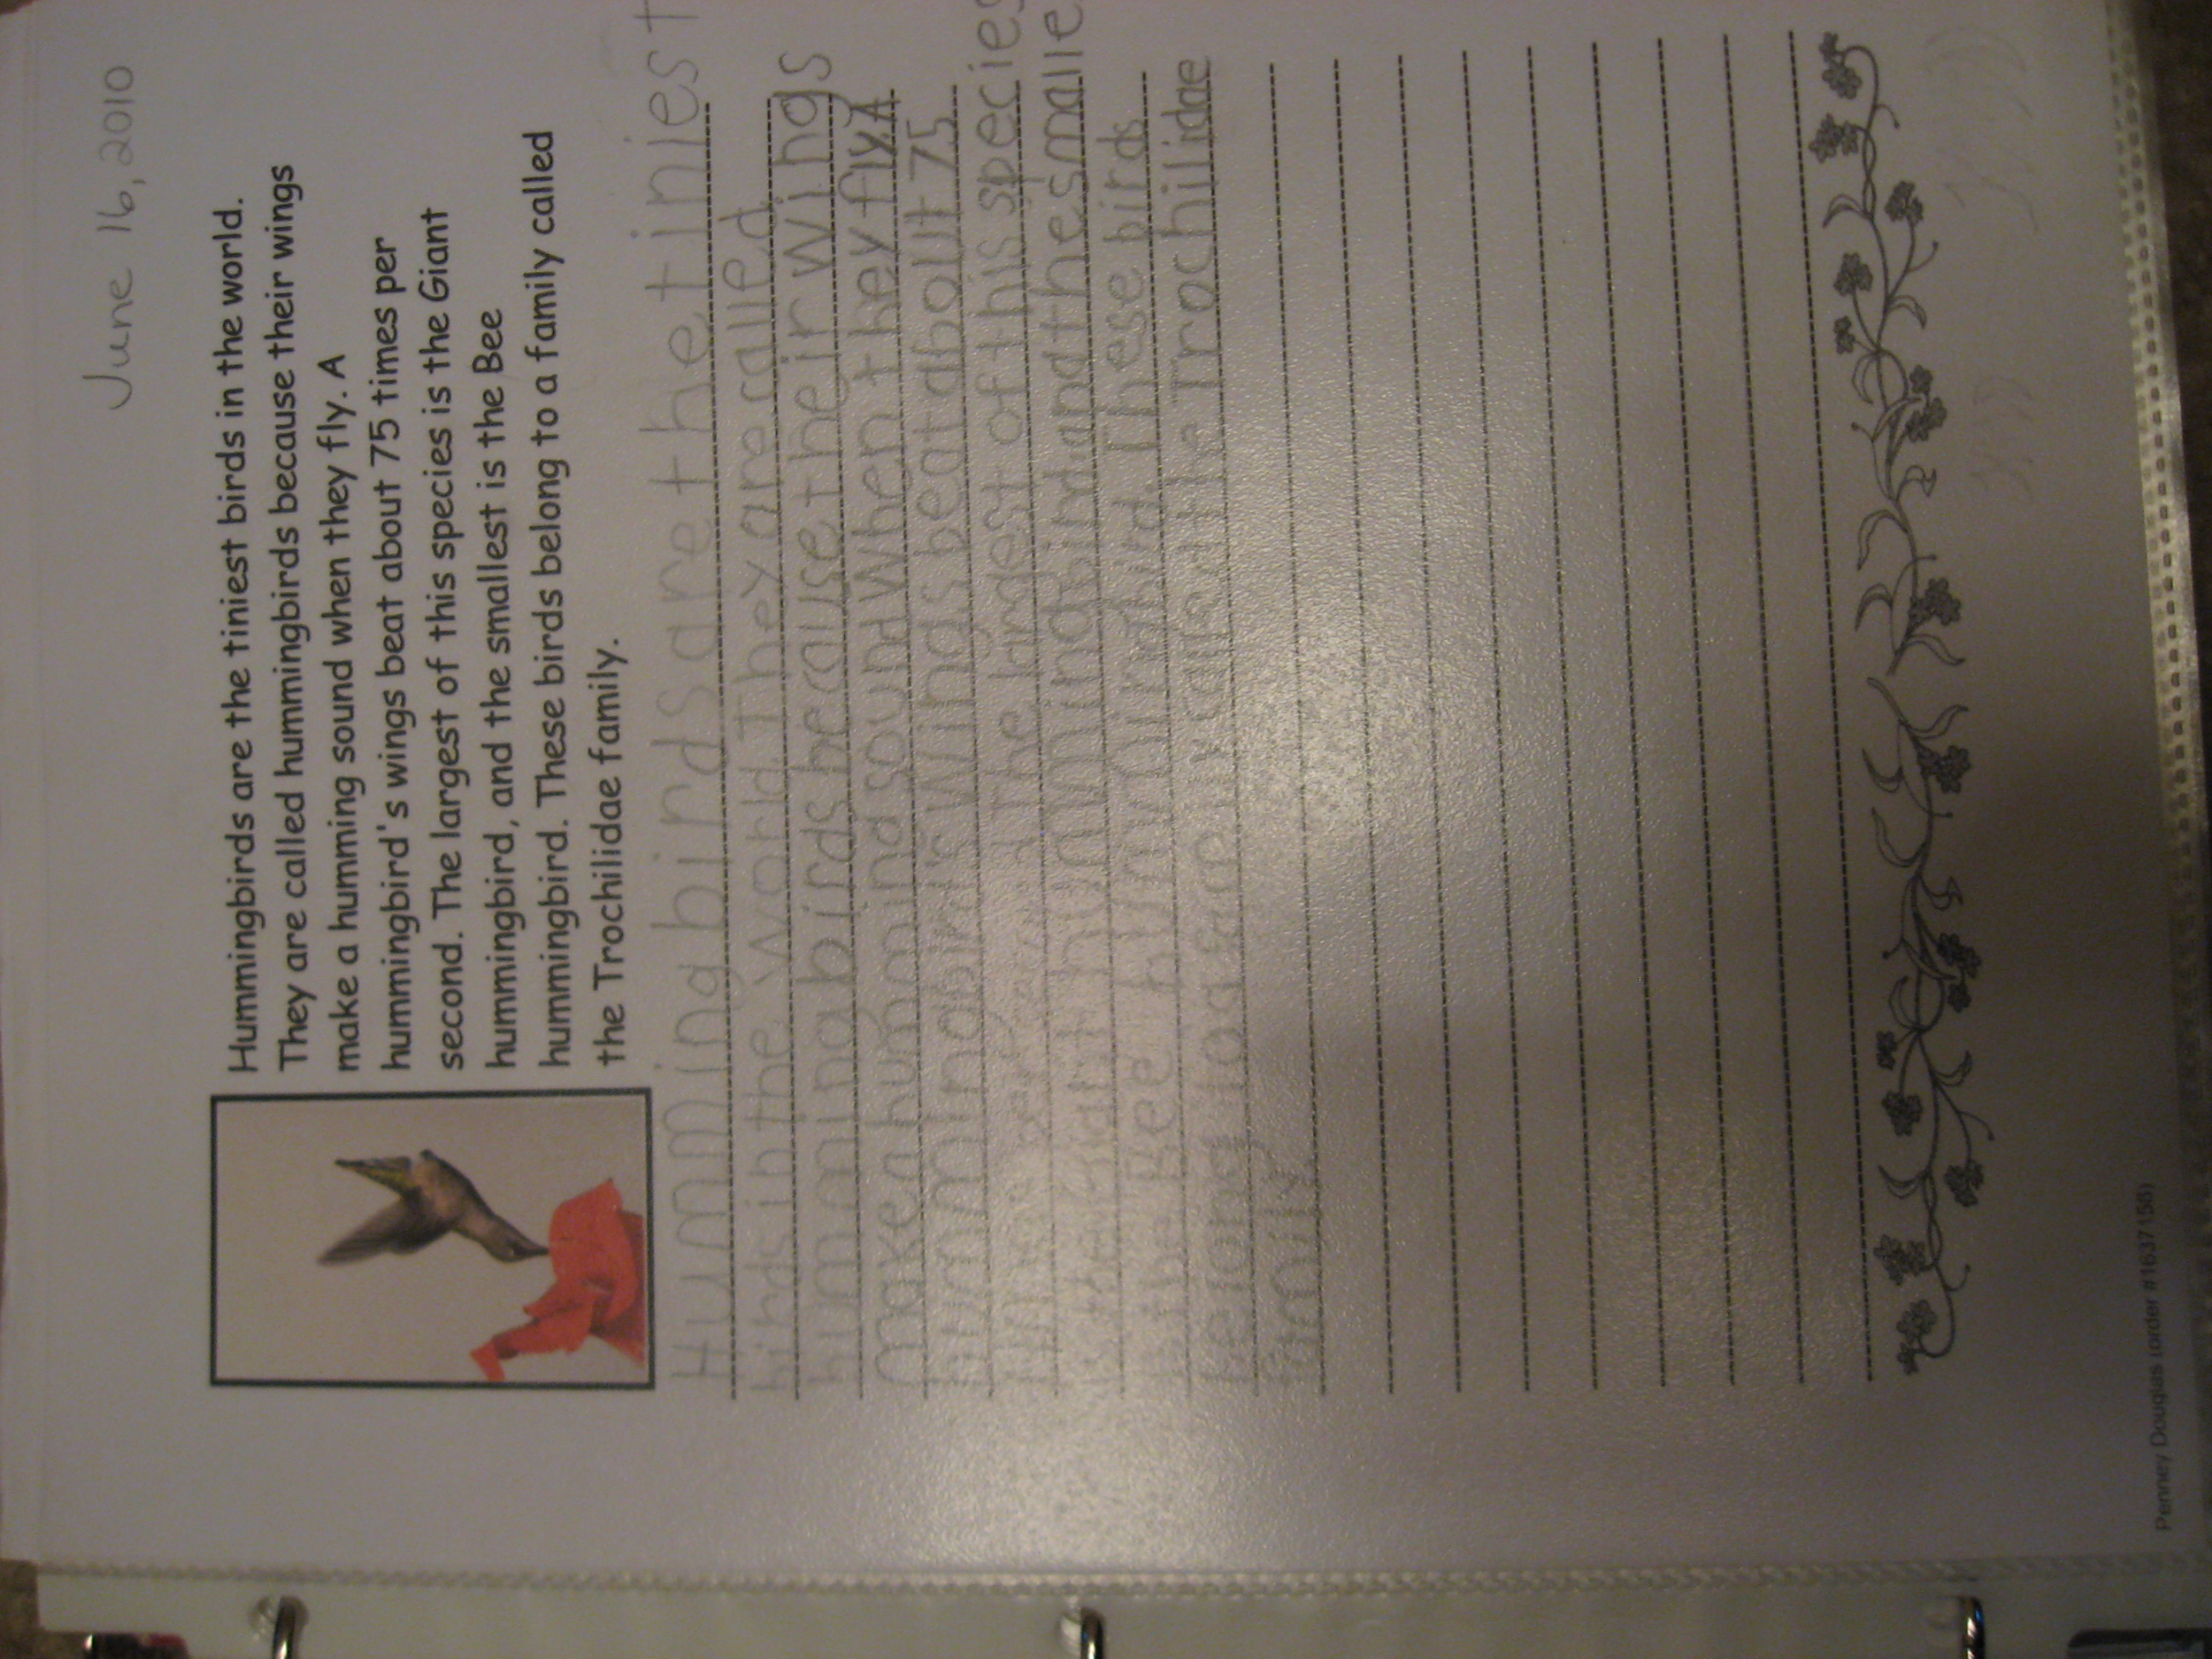 June 16, 2010
Hummingbirds are the tiniest birds in the world.
They are called hummingbirds because their wings
make a humming sound when they fly. A
hummingbird's wings beat about 75 times per
second. The largest of this species is the Giant
hummingbird, and the smallest is the Bee
hummingbird. These birds belong to a family called
the Trochilidae family.
Humming birds are the tiniest
birds in the world. They are called
humming birds because their wings
make a humming sound when they fly. A
hummingbird's wings beat about 75
The largest of this species
is the Giant hummingbird and the smalle
the Bee hummingbird. These birds
belong to a family called the Trochilidae
family.
Penney Douglas (order #1637158)